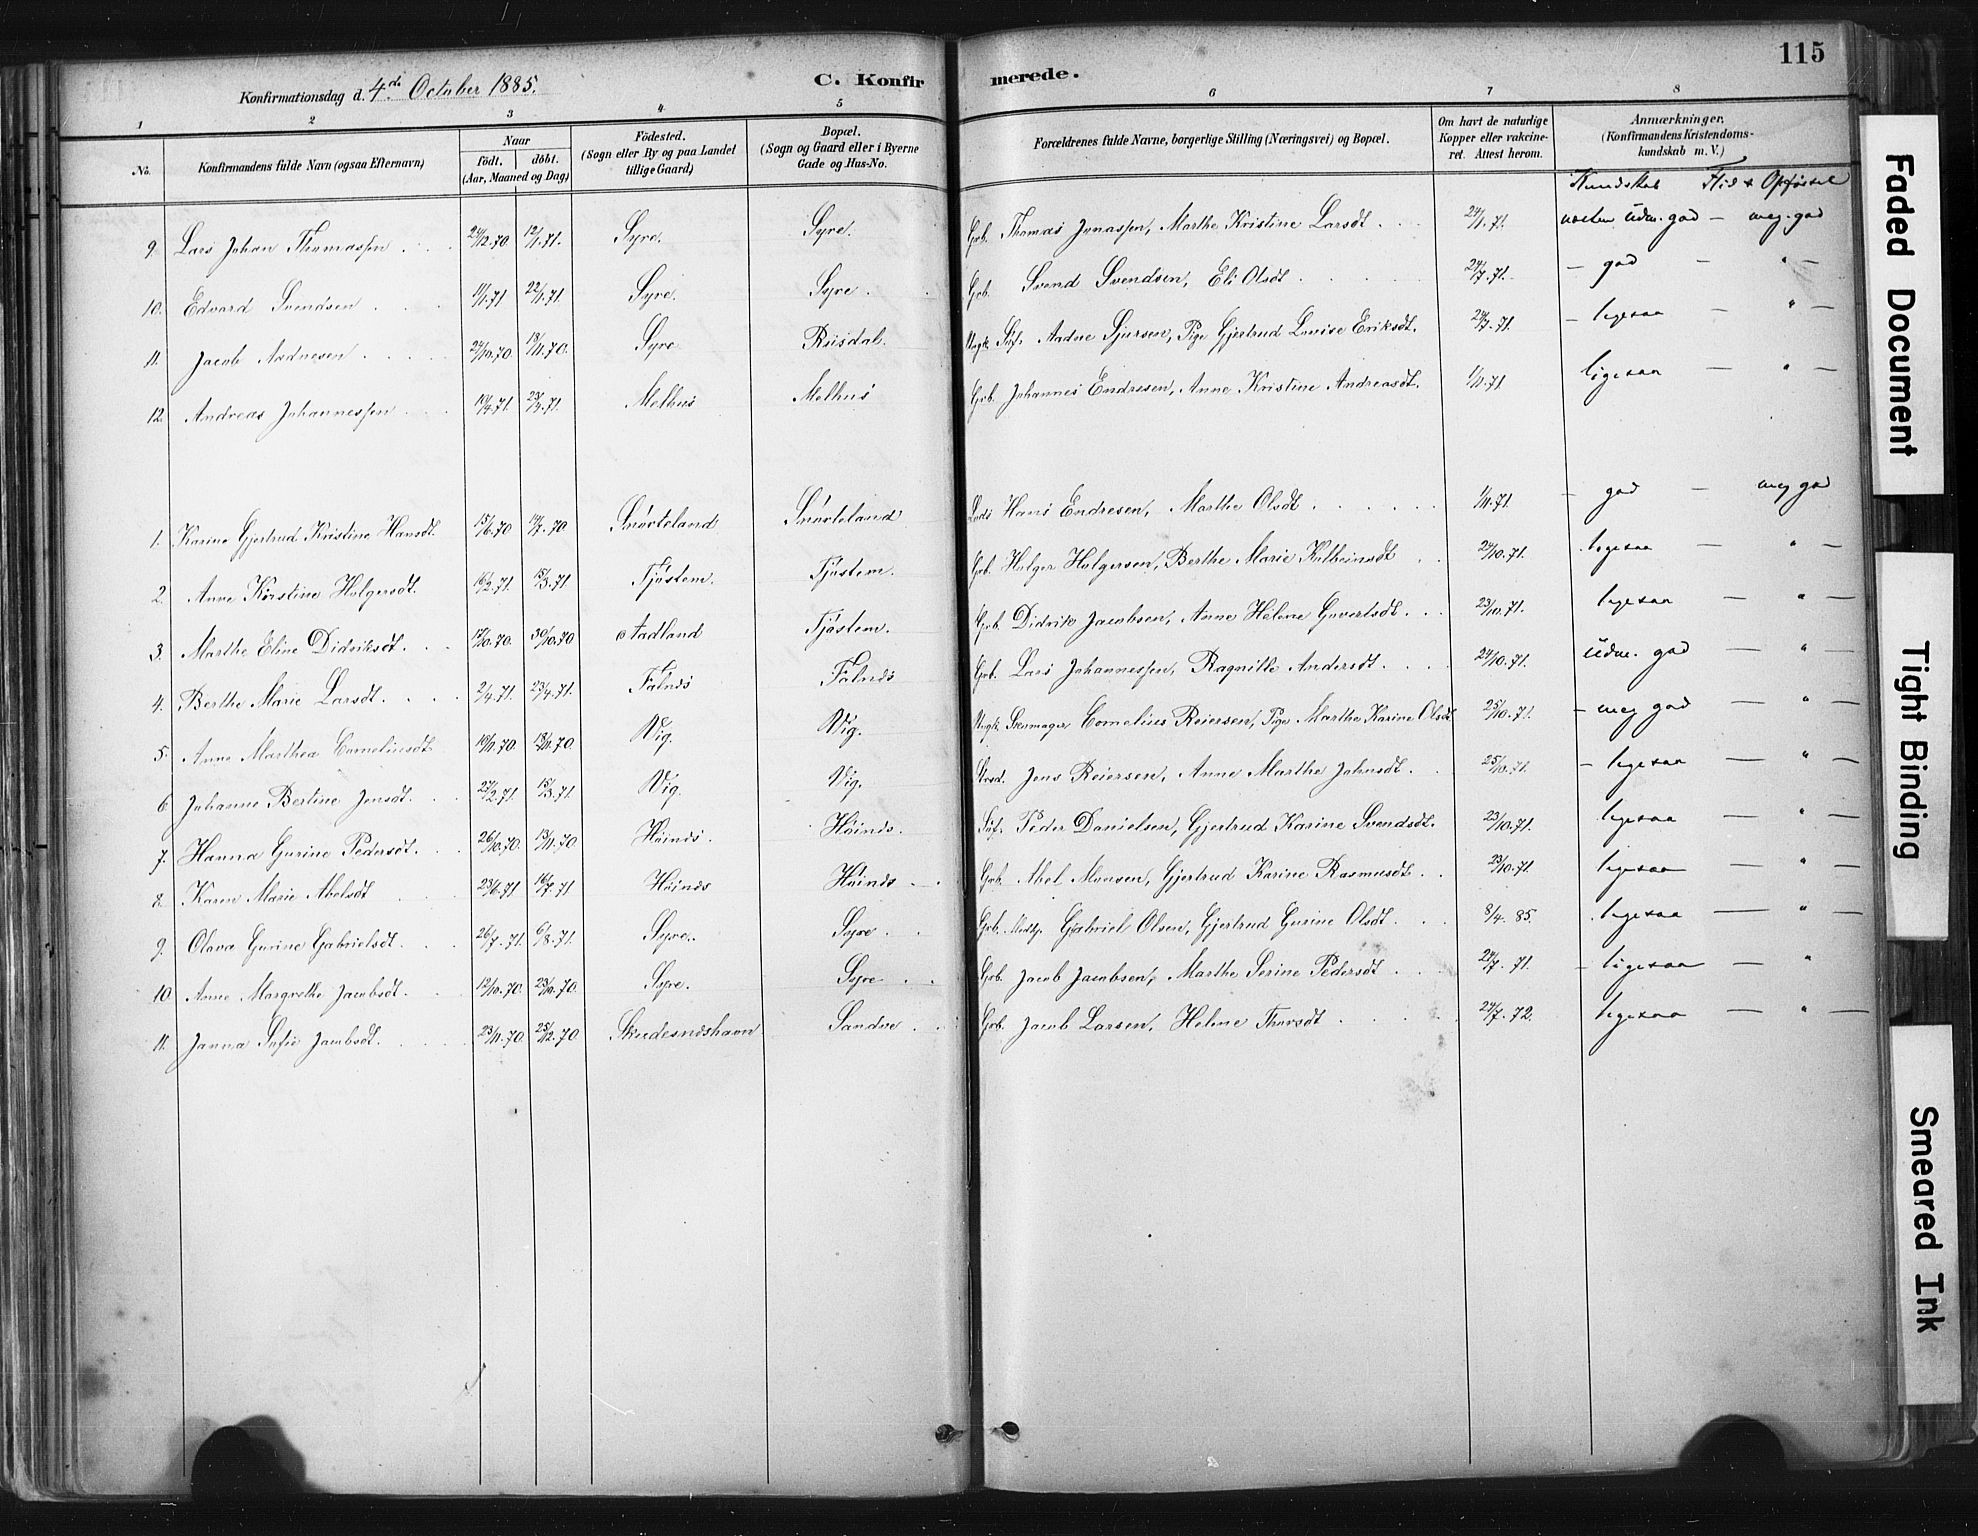 115
Konfirmationsdag d. 4de October 1885.
C. Konfirmerede.
1 2 3 4 5 6 7 8
No.
Konfirmandens fulde Navn (ogsaa Efternavn)
Naar
födt. döbt.
(Aar, Maaned og Dag)
Födested.
(Sogn eller By og paa Landet
tillige Gaard)
Bopæl.
(Sogn og Gaard eller i Byerne
Gade og Hus-No.
Forældrenes fulde Navne, borgerlige Stilling (Næringsvei) og Bopæl.
Om havt de naturlige
Kopper eller vakcine-
ret. Attest herom.
Anmærkninger.
(Konfirmandens Kristendoms-
kundskab m. V.)
Kundskab Flid & Opførsel
9. Lars Johan Thomassen 24/12.70 12/1.71. Syre. Syre. Gbr. Thomas Jonassen, Marthe Kristine Larsdt 24/1.71. næsten üdm. god — meg. god
10. Edvard Svendsen 11/1.71 22/1.71. Syre. Syre. Gbr. Svend Svendsen, Eli Olsdt 24/7.71. — god — " —
11. Jacob Aadnesen 24/10.70 13/11.70. Syre Risdal. Ungk. Søf. Aadne Sjursen, Pige Gjertrud Lovise Eriksdt. 24/7.71. — ligesaa — " —
12. Andreas Johannessen 10/4.71. 23/4.71. Melhus Melhus Gbr. Johannes Endresen, Anne Kristine Andreasdt. 1/11.71 ligesaa — " —
1. Karine Gjertrud Kristine Hansdt. 15/6.70 17/7.70. Snørteland Snørteland Hans Endresen, Marthe Olsdt 1/11.71. — god — meg god
2. Anne Kirstine Holgersdt. 16/2.71. 15/3.71 Tjøstem. Tjøstem. Gbr. Holger Holgersen, Berthe Marie Kolbeinsdt 24/10.71. ligesaa — " —
3. Marthe Eline Didriksdt. 17/10.70. 30/10.70 Aadland Tjøstem. Gbr. Didrik Jacobsen, Anne Helene Govertsdt 23/10.71. ligesaa — " —
4. Berthe Marie Larsdt. 2/4.71. 23/4.71. Falnes Falnes Gbr. Lars Johannessen, Ragnille Andersdt. 24/10.71. üdm. god — " —
5. Anne Marthea Corneliusdt 10/11.70. 13/11.70. Vig. Vig. Ungk. Skomager Cornelius Reiersen, Pige Marthe Karine Olsdt 25/10.71. — meg god — " —
6. Johanne Bertine Jensdt. 27/2.71. 15/3.71. Vig. Vig. Jens Reiersen, Anne Marthe Johnsdt. 25/10.71. — ligesaa — " —
7. Hanna Gurine Pedersdt. 26/10.70. 13/11.70 Høines. Høines. Søf. Peder Danielsen, Gjertrud Karine Svendsdt. 23/10.71. ligesaa — " —
8. Karen Marie Abelsdt 23/6.71 16/7.71 Høines Høines Gbr. Abel Monsen, Gjertrud Karine Rasmusdt 23/10.71. ligesaa — " —
9. Olava Gurine Gabrielsdt. 26/7.71. 6/8.71. Syre. Syre Gbr. Gabriel Olsen, Gjertrud Gurine Olsdt. 8/4.85. ligesaa — " —
10. Anne Margrethe Jacobsdt. 12/10.70. 23/10.70. Syre. Syre Gbr. Jacob Jacobsen, Marthe Serine Pedersdt 24/7.71. — ligesaa — "
11. Janna Sofie Jacobsdt. 23/11.70. 25/12.70. Skudesneshavn Sandve Gbr. Jacob Larsen, Helene Thorsdt 24/7.72. ligesaa — " —
Faded Document
Tight Binding
Smeared Ink